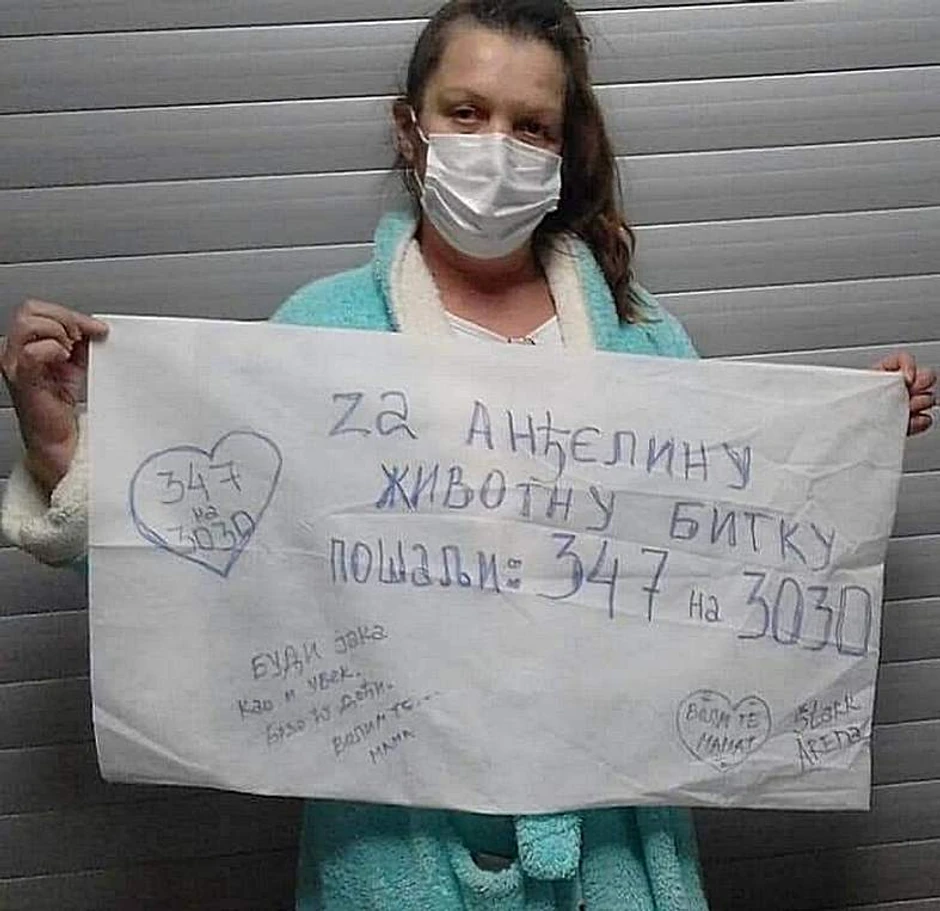 Za АНЂЕЛИНУ
ЖИВОТНУ БИТКУ
ПОШАЉИ: 347 на 3030
347
на
3030
БУДИ јака
Као и увек.
Брзо ћу доћи.
Волим те...
МАМА
ВОЛИМ ТЕ
МАМА
Stark
ARENA